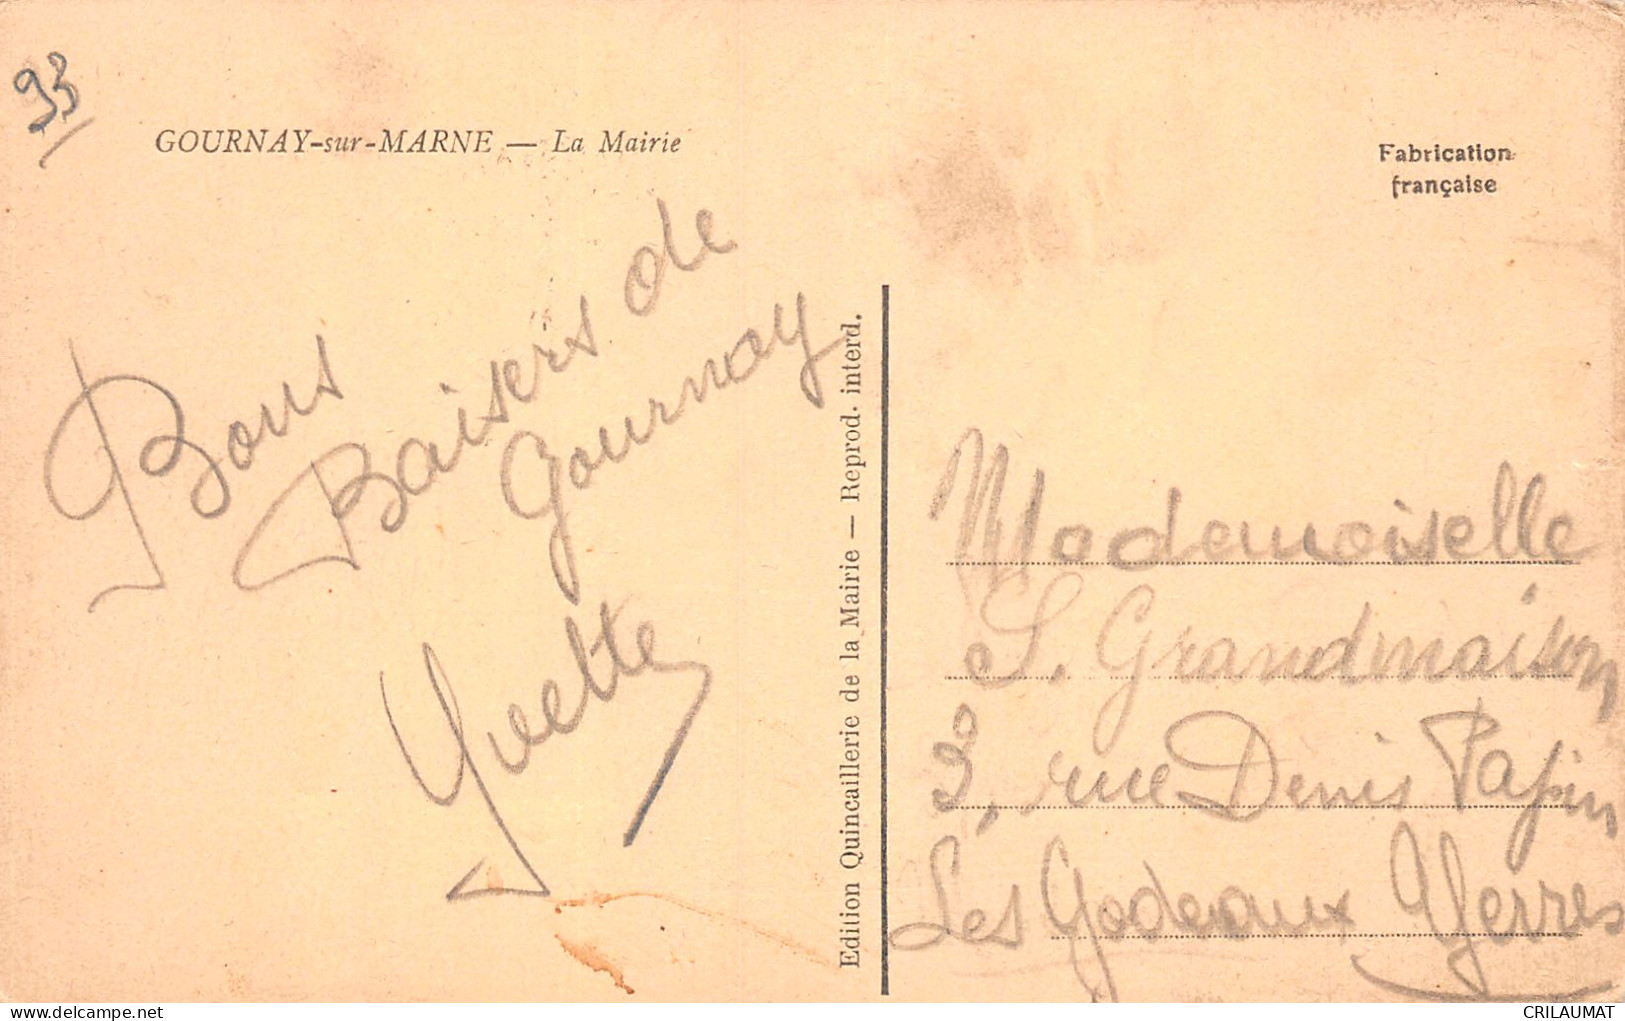 93
GOURNAY-sur-MARNE — La Mairie
Fabrication
française
Bons
Baisers de
Gournay
Yvette
Edition Quincaillerie de la Mairie — Reprod. interd.
Mademoiselle
S. Grandmaison
3, rue Denis Papin
Les Godeaux Yerres
delcampe.net
CRILAUMAT